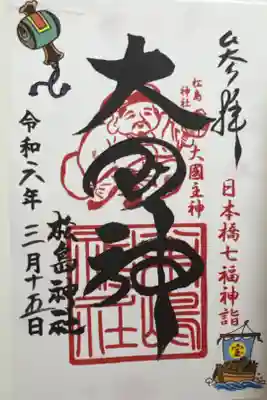 参拝
日本橋七福神詣
松島神社
大國主神
大国神
松島神社
令和六年 三月十五日
松島神社
宝